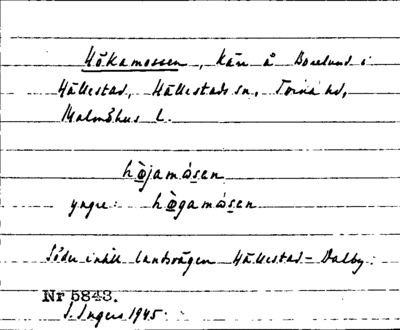 Hökamossen, Kärr å Boelund i
Hällestad, Hällestads sn, Torna hd,
Malmöhus L.
hø̀jamåsen
yngre: hø̀gamåsen
Söder intill landsvägen Hällestad - Dalby.
Nr 5843.
I. Ingers 1945.